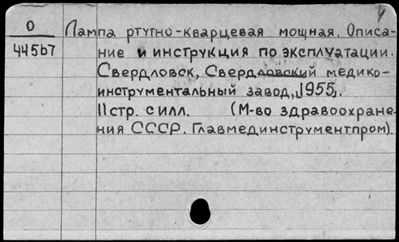 О
44567
Лампа ртутно-кварцевая мощная. Описа-
ние и инструкция по эксплуатации.
Свердловск, Свердловский медико-
инструментальный завод, 1955.
11стр. с илл. (М-во здравоохране-
ния СССР. Главмединструментпром).